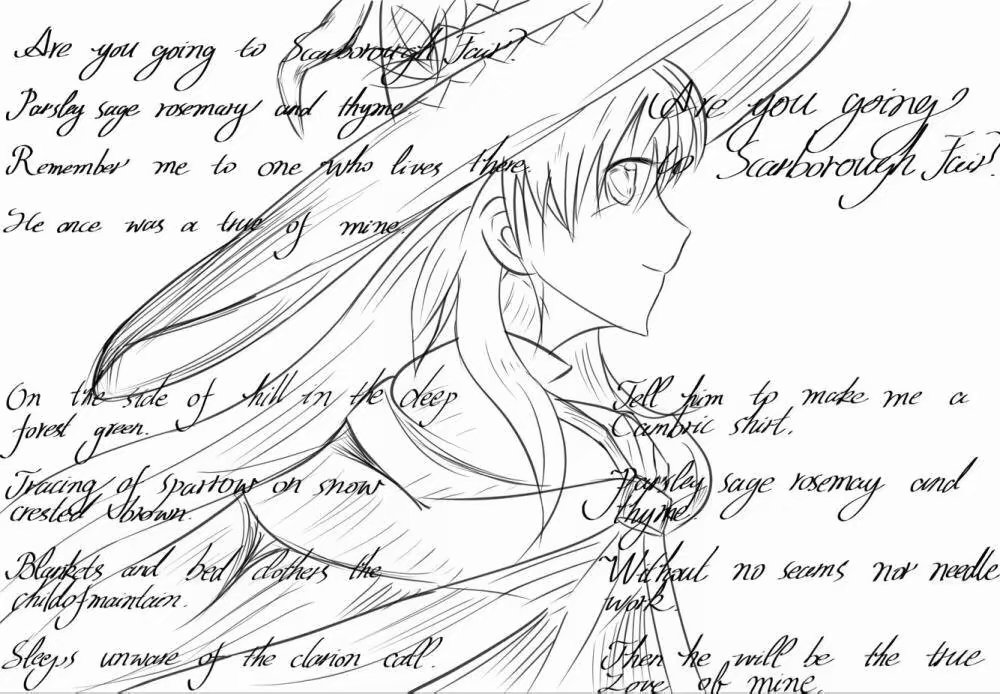 Are you going to Scarborough Fair?
Parsley sage rosemary and thyme.
Remember me to one who lives there.
He once was a true of mine.
Are you going
to Scarborough Fair?
On the side of hill in the deep
forest green.
Tracing of sparrow on snow
crested brown.
Blankets and bed clothers the
childofmaintain.
Sleeps unware of the clarion call.
Tell him to make me a
Cambric shirt.
Parsley sage rosemay and
thyme.
Without no seams nor needle
work.
Then he will be the true
Love of mine.